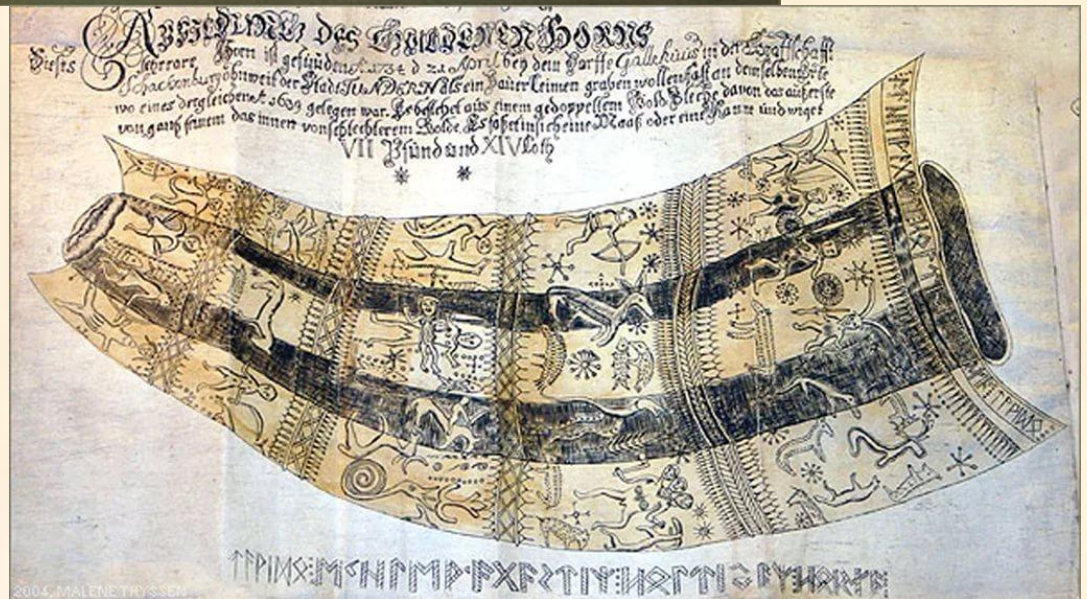 ABBILDUNG des GÜLDENEN HORNS
Dieses Horn ist gefunden A. 1734 d 21 April bey dem Dorffe Gallehuus in der Graffschafft
Schackenburg ohnweit der Stadt TUNDERN Als ein Bauer Leimen graben wollen an demselben Orte
wo eines dergleichen gelegen war. aus einem gedoppeltem Gold Bleche davon das äußerste
von gantz feinem das innere von schlechterem Golde. Maaß oder eine Kanne und wieget
VII Pfund und XIV Loth
ᛏᚨᚹᛁᛞᛟ⁝ᛖᚲᚺᛚᛖᚹᚨᚷᚨᛊᛏᛁᛉ⁝ᚺᛟᛚᛏᛁᛃᚨᛉ⁝ᚺᛟᚱᚾᚨ
2004, MALENE THYSSEN